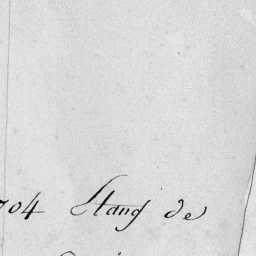 704 Stang de